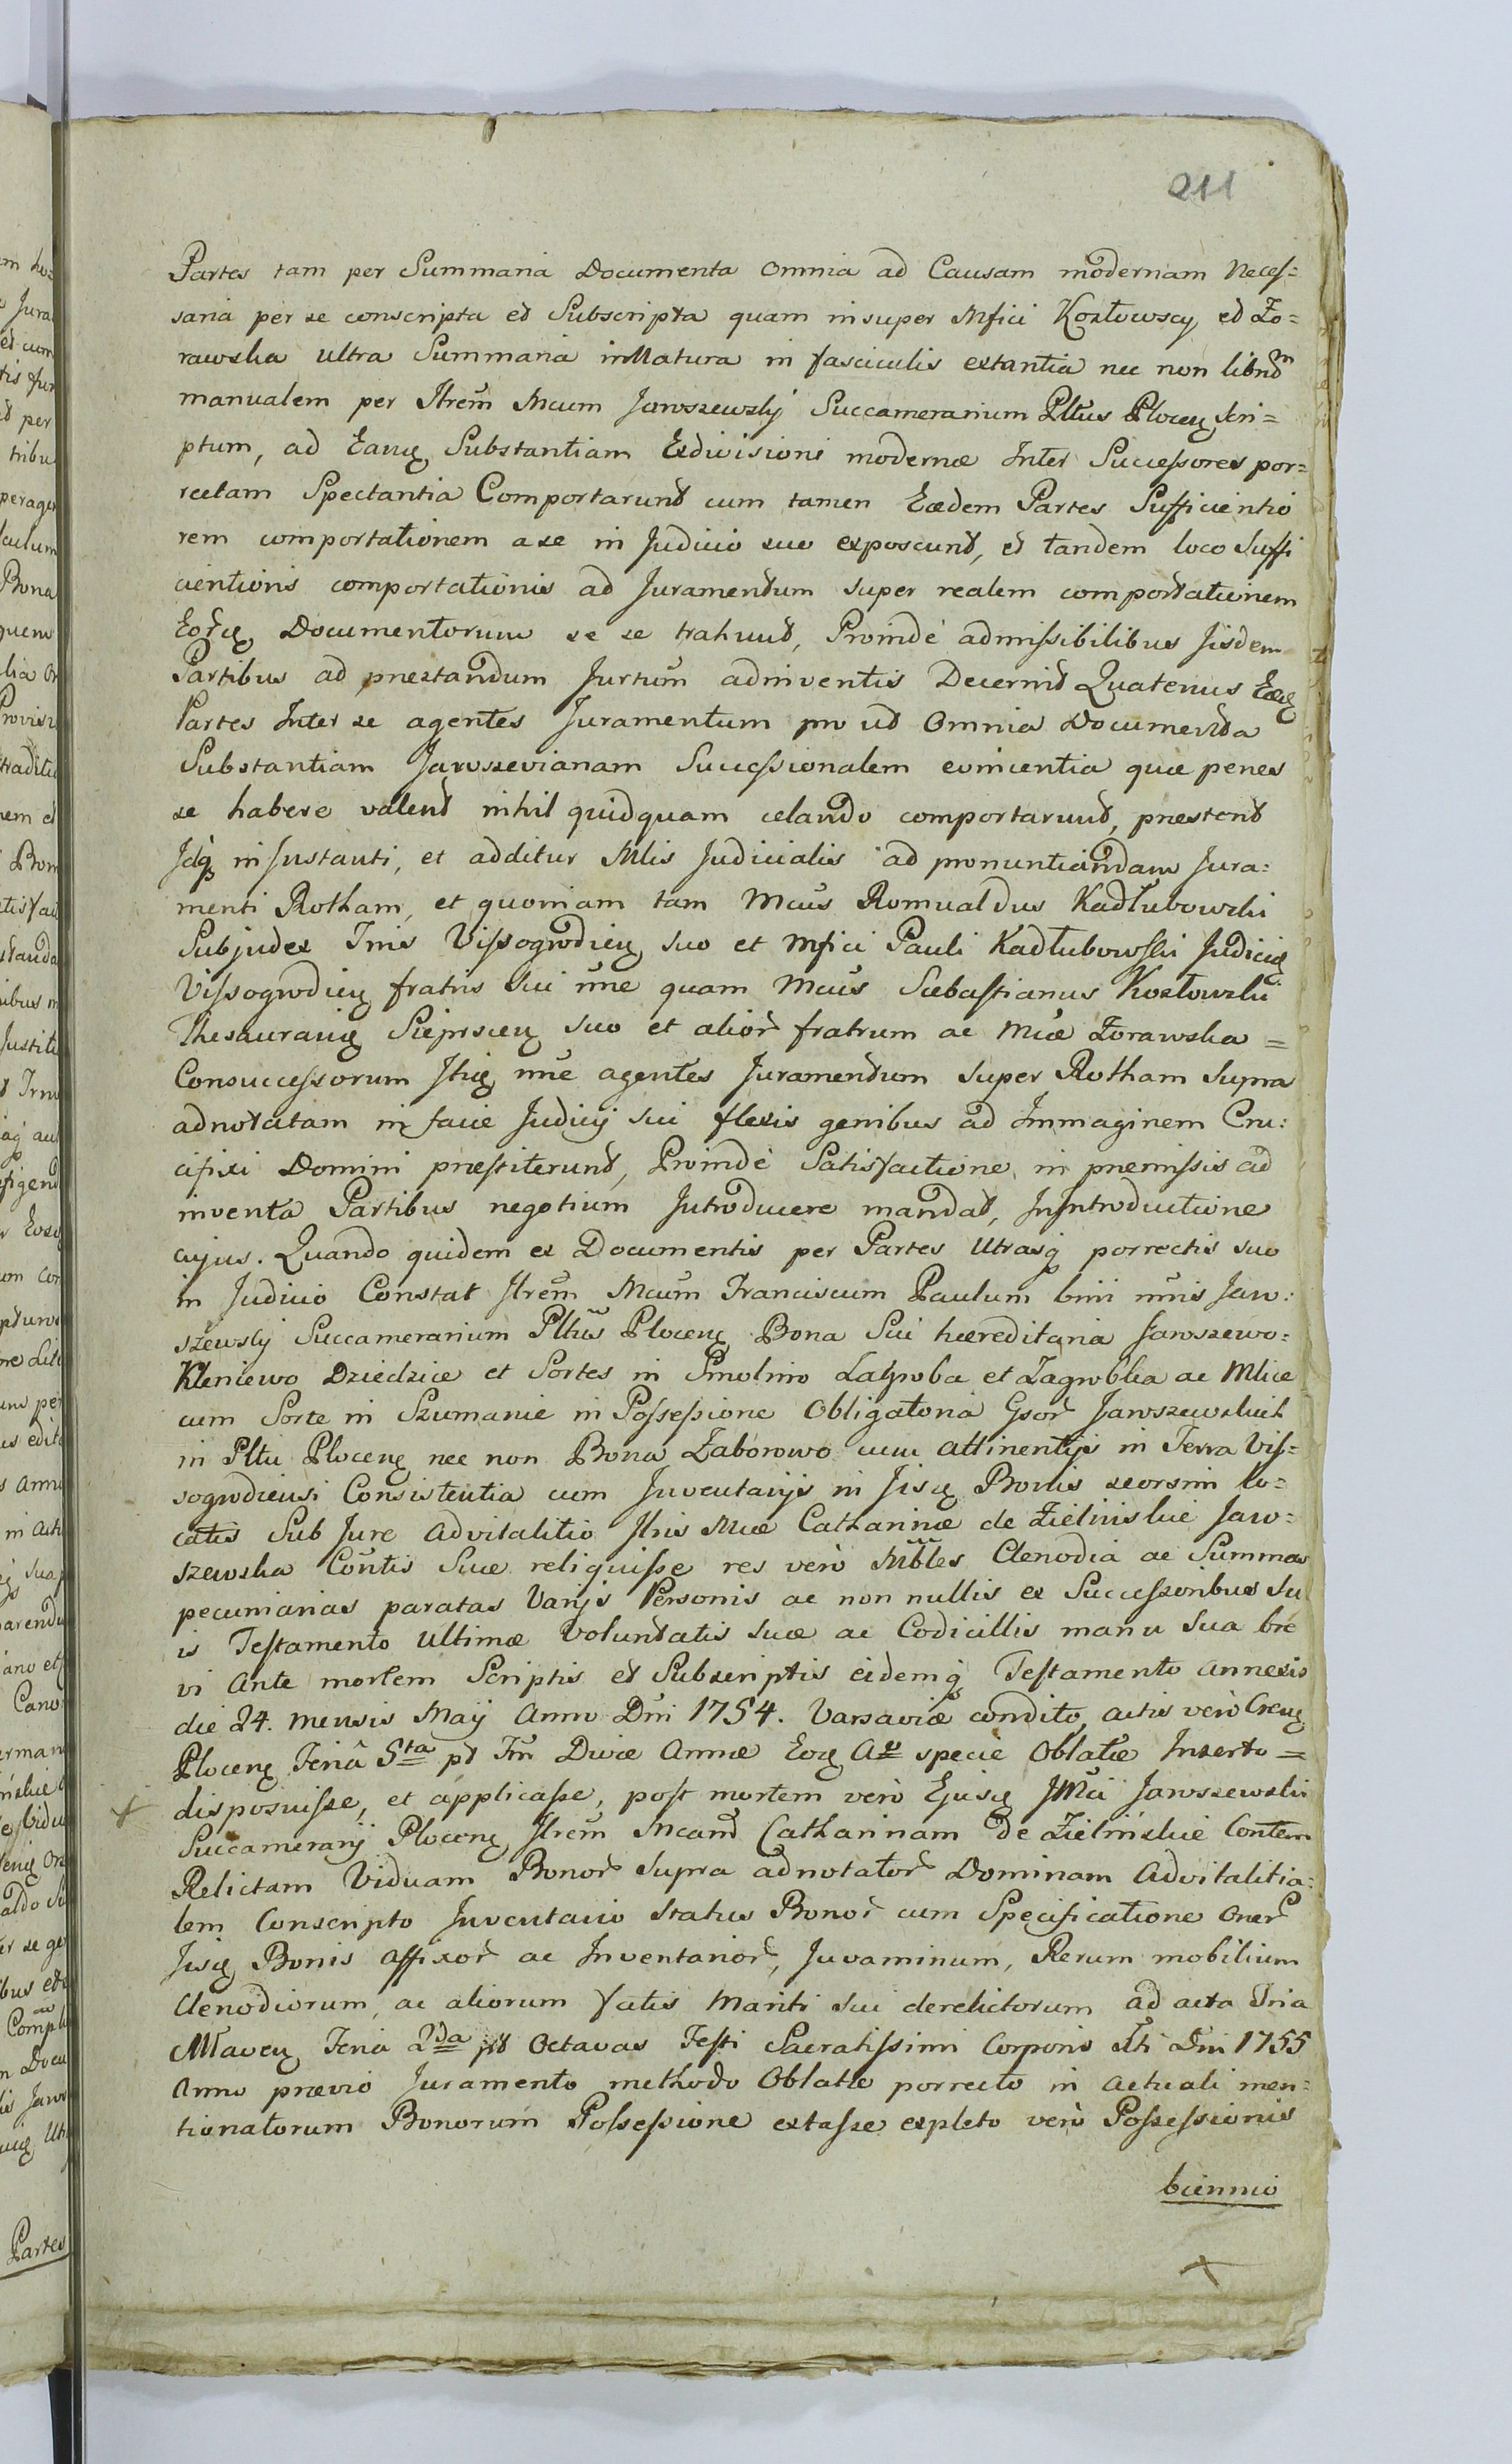 211
Partes tam per Summaria Documenta Omnia ad Causam modernam Neces=
saria per se conscripta et Subscripta quam insuper Mfici Kozłowscy et Zo=
rawska ultra Summaria in Natura in fasciculis extantia nec non librum
manualem per Jllrem Mcum Jaroszewskj Succamerarium Pltus Plocen Scri=
ptum, ad Eanq Substantiam Exdivisioni modernæ Inter Successores por=
rectam Spectantia Comportarunt cum tamen Eædem Partes Sufficientio
rem comportationem a se in Judicio suo exposcunt, et tandem loco Suffi
cientioris comportationis ad Juramentum super realem comportationem
Documentorum se se trahunt, Proindè admissibilibus Jisdem
Partibus ad præstandum Jurtum adinventis Decernit Quatenus
Partes Inter se agentes Juramentum pro ut Omnia Documenta
Substantiam Jaroszevianam Successionalem evincentia quæ penes
se habere valent nihil quidquam celando comportarunt, præstent
Jdq in Instanti, et additur Mlis Judicialis ad pronuntiandam Jura:
menti Rotham, et quoniam tam Mcus Romualdus Kadłubowski
Subjudex Tris Vissogrodien suo et Mfici Pauli Kadłubowski Judicis
Vissogrodien fratris sui nne quam Mcus Sebastianus Kozłowski
Sieprscen suo et alior fratrum ac Mcæ Zorawska =
Consuccessorum nne agentes Juramentum super Rotham supra
adnotatam in facie Judicij sui flexis genibus ad Jmmaginem Cru:
cifixi Domini præstiterunt, Proindè Satisfactione in præmissis ad
inventa Partibus negotium Jntroducere mandat, In Introductione
cujus. Quando quidem ex Documentis per Partes Utrasq porrectis suo
in Judicio Constat Jllrem Mcum Franciscum Paulum bini nnis Jaro:
szewskj Succamerarium Pltus Plocen Bona Sui hæreditaria Jaroszewo=
Kleniewo Dziedzice et Sortes in Smolino et Zagroblka ac Mlice
cum Sorte in Szumanie in Possessione Obligatoria Gsor Jaroszewskich
in Pltu Plocen nec non Bona Zaborowo cum attinentijs in Terra Vis=
sogrodiensi Consistentia cum Jnventarijs in Jisq Bonis seorsim lo=
catis Sub Jure advitalitio Jllris Mcæ Catharinæ de Zielinskie Jaro=
szewska Contis Suæ reliquisse res verò Mbles Clenodia ac Summas
pecuniarias paratas Varijs Personis ac non nullis ex Successoribus Su
is Testamento Ultimæ Voluntatis suæ ac Codicillis manu sua bre
vi ante mortem Scriptis et Subscriptis eidemq Testamento annexis
die 24. mensis Maij Anno Dni 1754. Varsaviæ condito, actis verò Cren
Plocen Feriâ 5ta pt Fm Divæ Annæ Eog Ao specie Oblatæ Inserto =
disposuisse, et applicasse, post mortem verò Ejusq JMci Jaroszewski
Succamerarij Plocen Jllrem Mcam Catharinam De Zielinskie Contem
Relictam Viduam Bonor Supra adnotator Dominam Advitalitia=
lem Conscripto Jnventario Status Bonor cum Specificatione Oner
Jisq Bonis affixor ac Inventarior, Juvaminum, Rerum mobilium
Clenodiorum, ac aliorum fatis Mariti sui derelictorum ad acta Tria
Mlaven Feria 2da pt Octavas Festi Sacratissimi Corporis Dni 1755
Anno prævio Juramento methodo Oblatæ porrecto in actuali men=
tionatorum Bonorum Possessione extasse expleto verò Possessionis
biennio